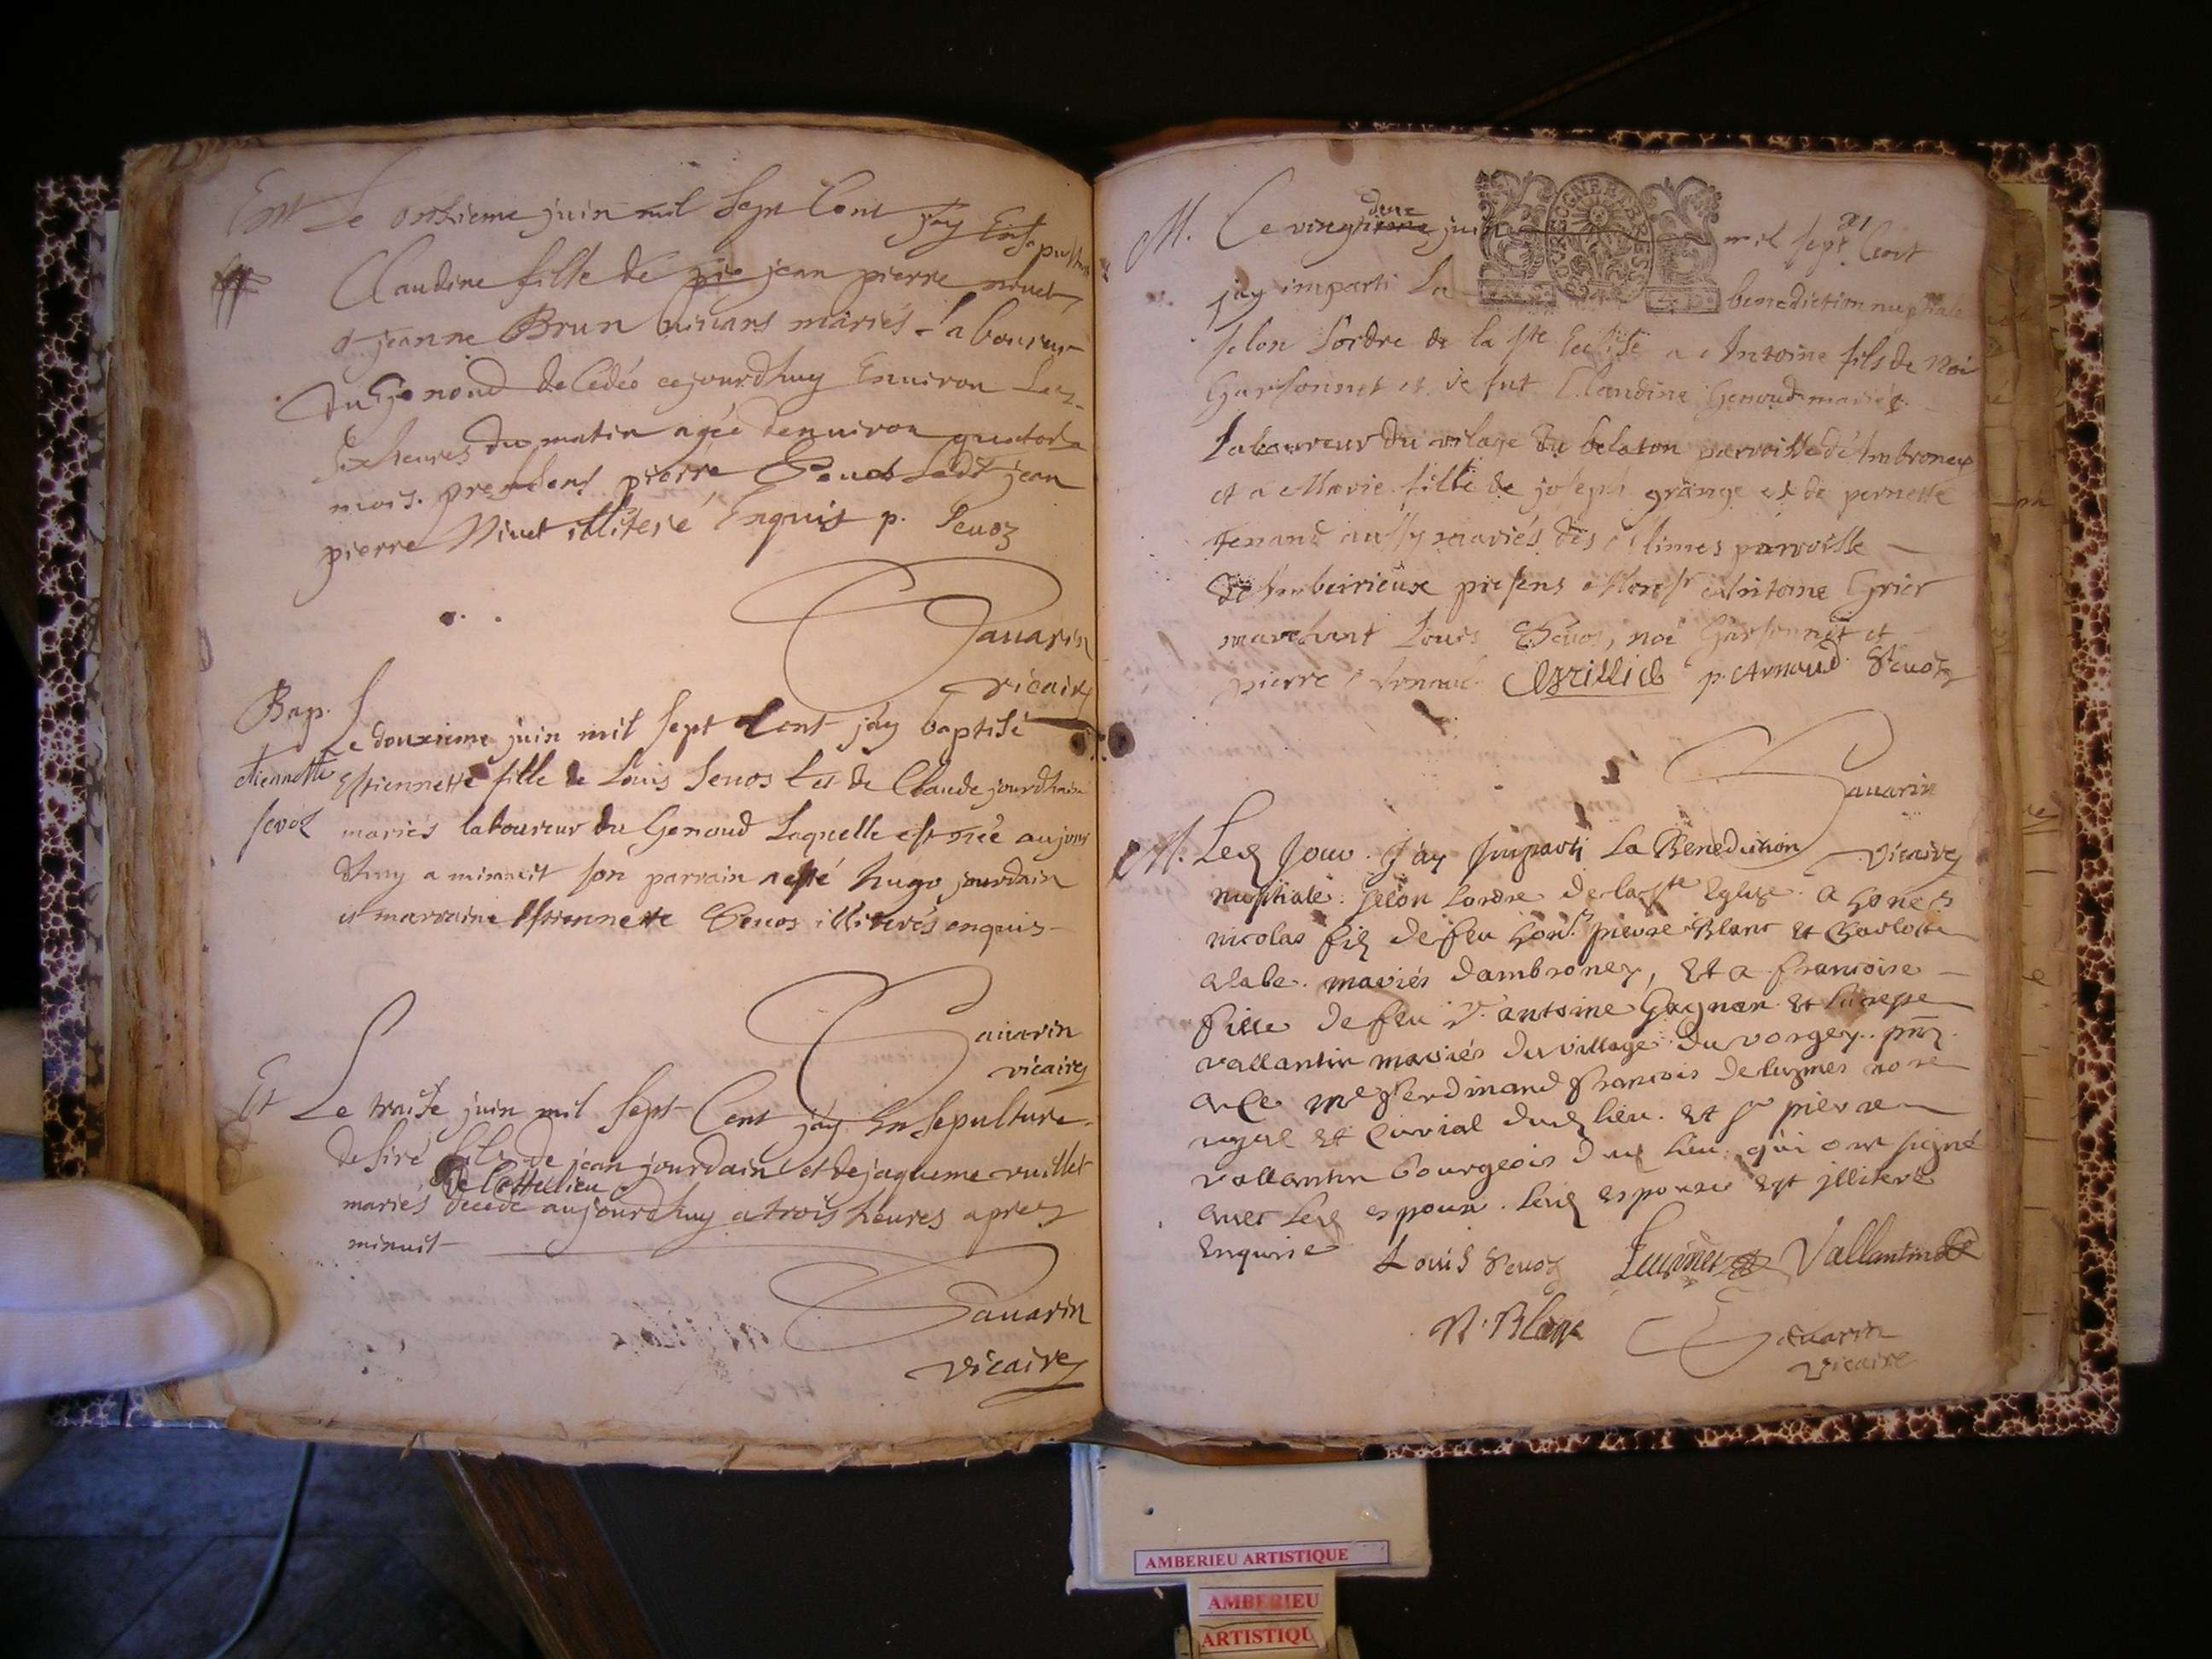 Ent Le onzieme juin mil Sept Cent j'ay Ensepulturé
Claudine fille de jean pierre nivet
& jeanne Brun vivans mariés Laboureur
du Genoud decedéé cejourdhuy Environ Les
Six heures du matin agéé denuiron quatorze
mois. presens pierre Seuos Ledt jean
pierre Nivet illiteré Enquis p. Seuoz
Sauarin
vicaire
Bap.
etiennette
sevoz
Le douzieme juin mil sept Cent j'ay baptisé
Estiennette fille de Louis Seuos et de Claude jourdhain
mariés laboureur du Genoud Laquelle est néé aujour
dhuy a minuit son parrain a esté hugo jourdain
et marraine Estiennette Seuos illiterés enquis
Sauarin
vicaire
Et Le traise juin mil Sept Cent j'ay Ensepulture
desiré fils de jean jourdain et de jaqueme vuillet
de Cottelieu
mariés decede aujourdhuy a trois heures apres
minuit
Sauarin
vicaire
M. Ce vingt deux juin mil sept Cent
j'ay imparti La benediction nuptiale
selon Lordre de la ste Eglise a Antoine fils de Noé
Garsonnet et de fut Claudine Genoud mariés
Laboureur du vilage du belaton parroisse dé Ambroney
et a Marie fille de joseph grange et de pernette
Tenand aussy mariés dés Alimes parroisse
de Amberrieux presens Antoine Grier
marchant Louis Seuos, noé Garsonnet et
pierre Arnaud p. Arnaud Seuoz
Sauarin
vicaire
M. Led Jour. J'ay Imparti La Benediction
nuptiale: selon Lordre de la ste Eglize. a honest
nicolas filz de feu hon. pierre Blanc et Charlotte
alabe. mariés dambroney, Et a francoise
fille de feu Sr. antoine Gagnon et Lucresse
vallantin mariés du village du vorgey.
me ferdinand francois deluymes nore
royal Et Curial dud lieu. Et Sr pierre
vallantin bourgeois dud lieu qui ont signé
avec Led espoux. Lad espouse Est jlliteré
Enquise
Louis Seuoz Luymes Vallantin
N. Blanc Sauarin
vicaire
AMBERIEU ARTISTIQUE
AMBERIEU
ARTISTIQU